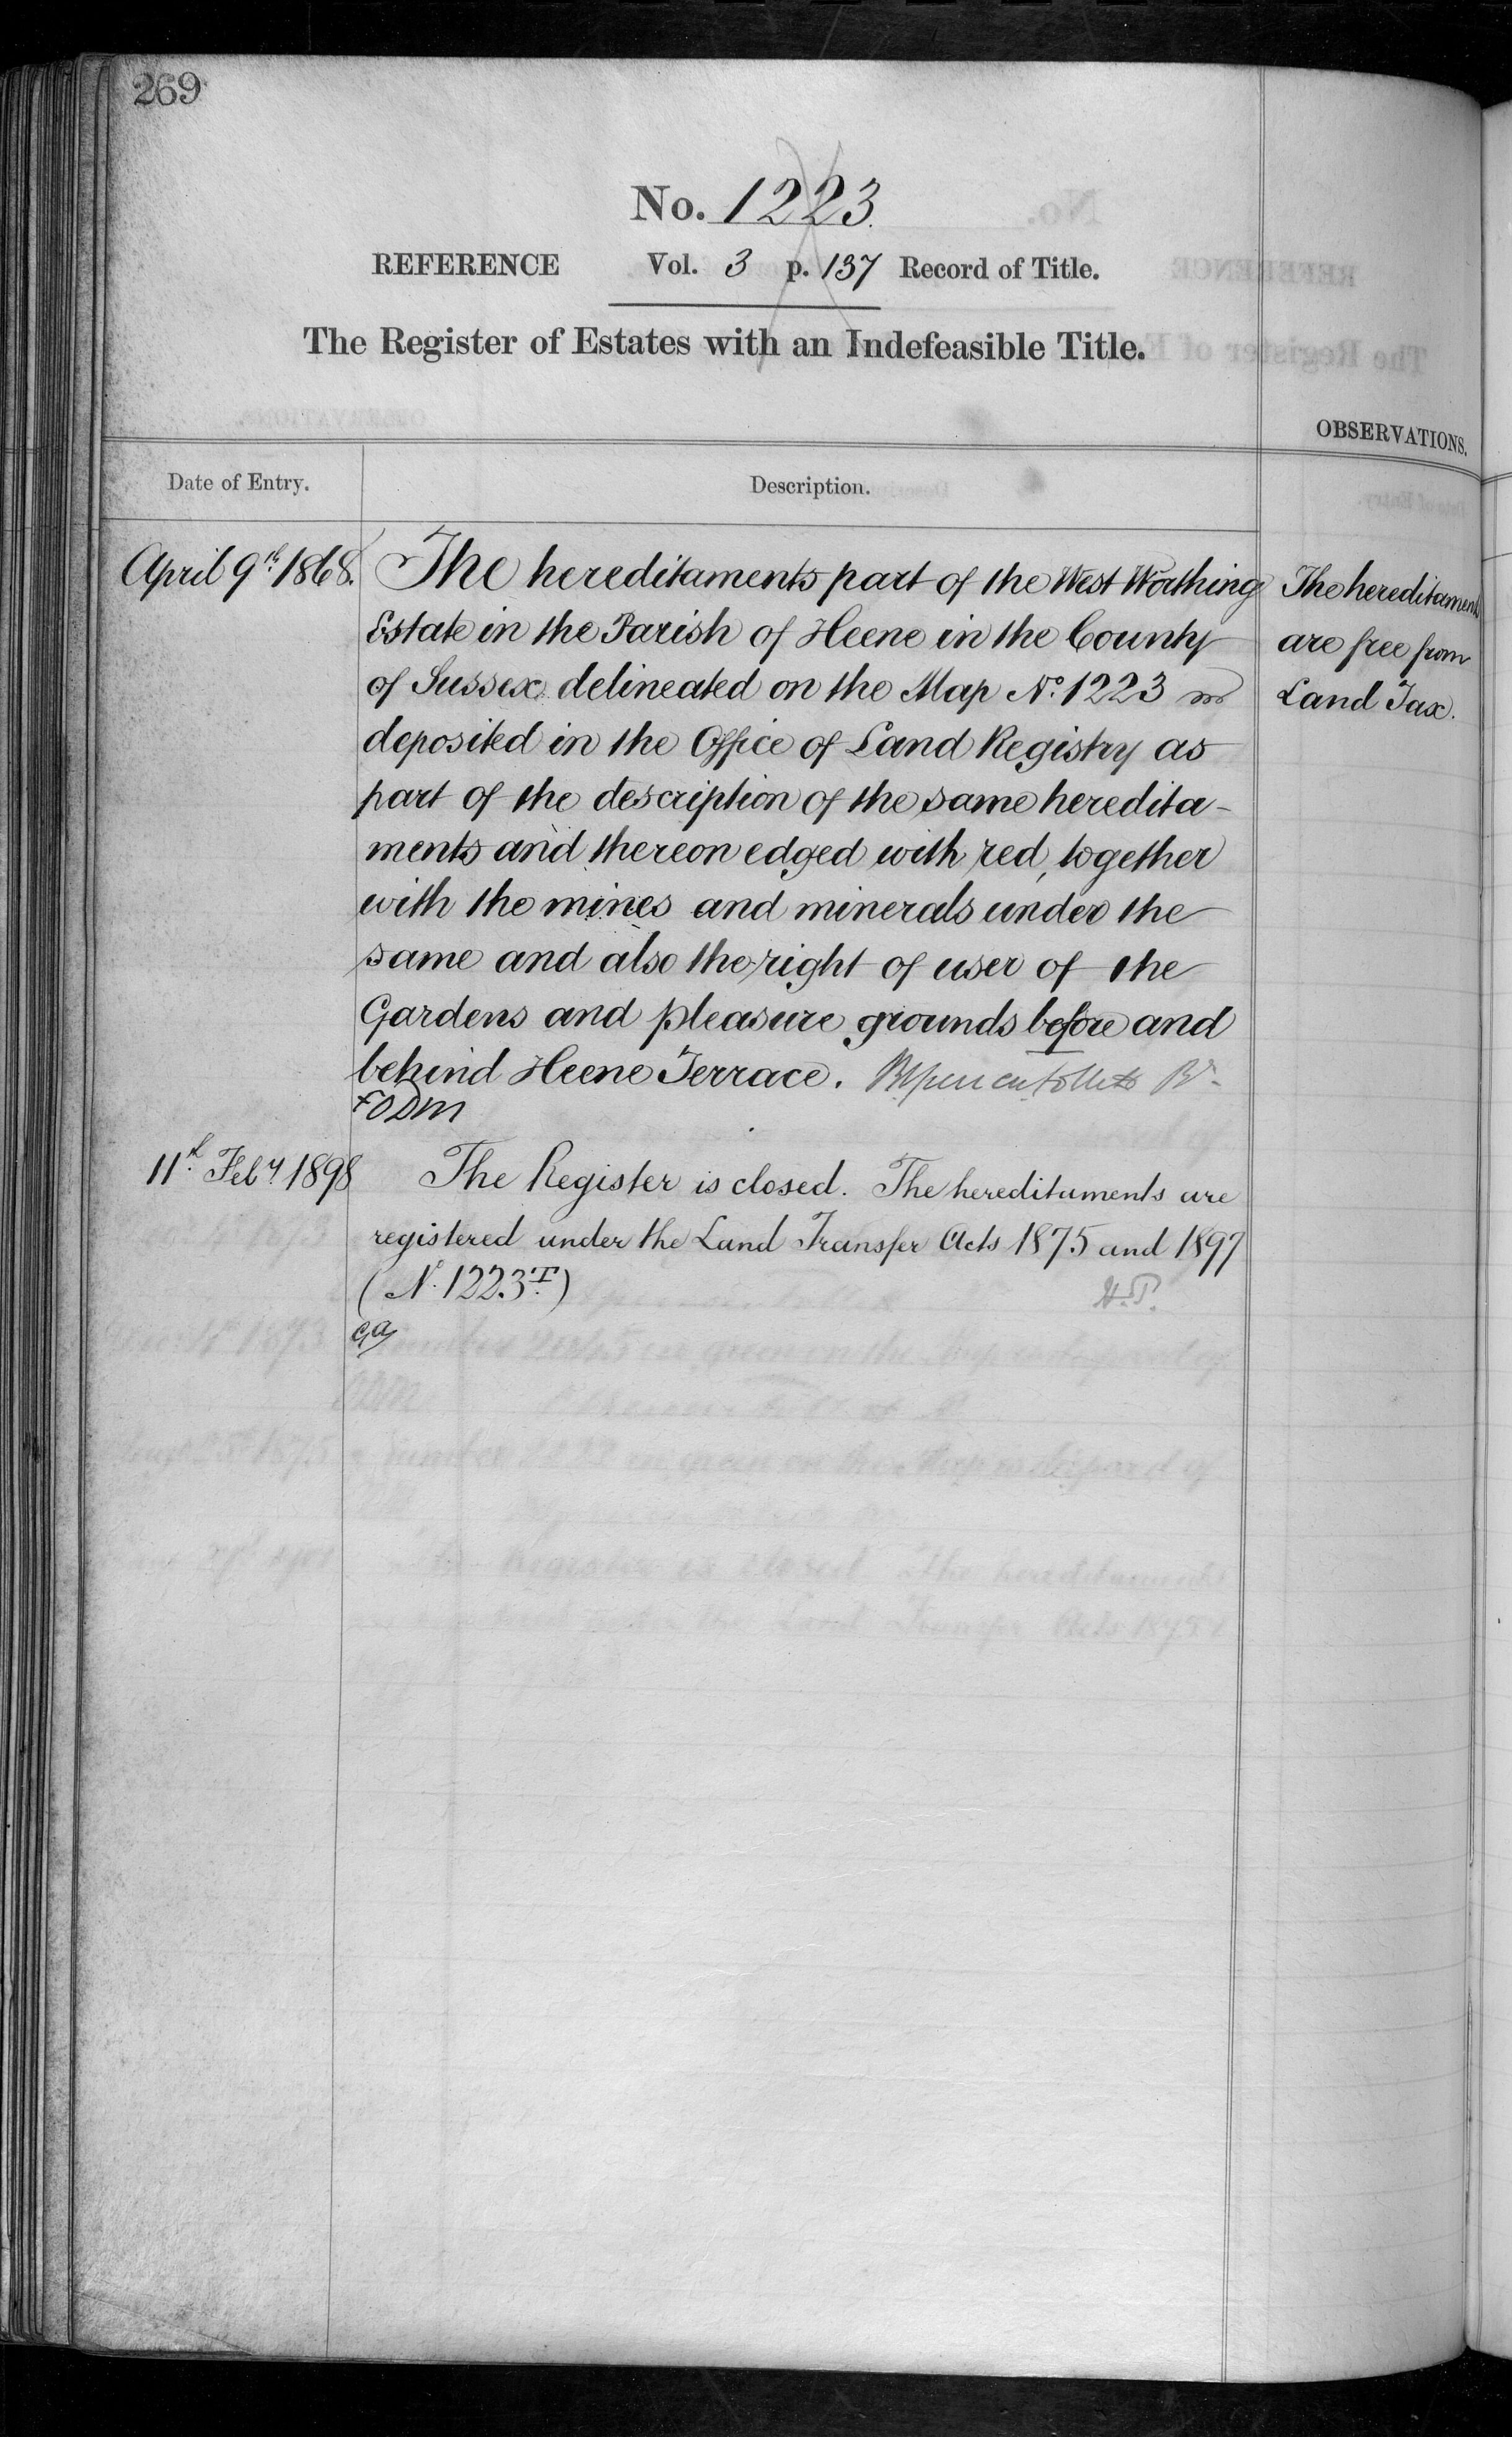 269
No. 1223.
REFERENCE Vol. 3 p. 137 Record of Title.
The Register of Estates with an Indefeasible Title.
OBSERVATIONS.
Date of Entry. Description.
April 9th. 1868. The hereditaments part of the West Worthing
Estate in the Parish of Heene in the County
of Sussex delineated on the Map No. 1223
deposited in the Office of Land Registry as
part of the description of the same heredita-
ments and thereon edged with red, together
with the mines and minerals under the
same and also the right of user of the
Gardens and pleasure grounds before and
behind Heene Terrace.
The hereditaments
are free from
Land Tax.
11th. Feby 1898 The Register is closed. The hereditaments are
registered under the Land Transfer Acts 1875 and 1897
(No. 1223T.) H.P.